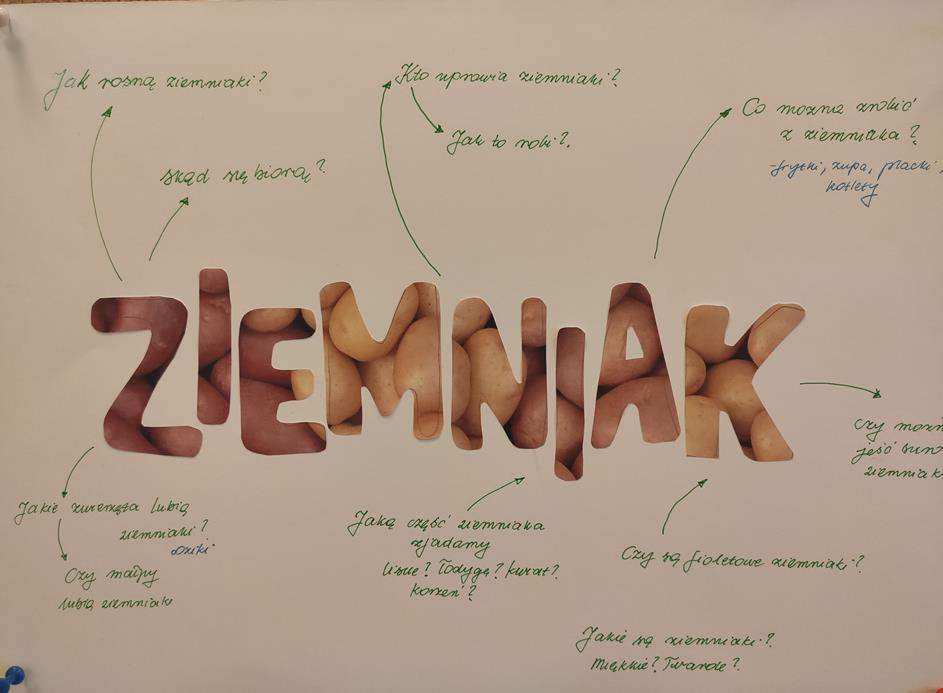 Jak rosną ziemniaki?
skąd się biorą?
Kto uprawia ziemniaki?
Jak to robi?.
Co można zrobić
z ziemniaka?
-frytki, zupa, placki,
kotlety
ZIEMNIAK
Czy możn
jeść suro
ziemniak
Jakie zwierzęta lubią
ziemniaki?
Dziki
Czy małpy
lubią ziemniaki
Jaką część ziemniaka
zjadamy
liście? łodygę? kwiat?
korzeń?
Czy są fioletowe ziemniaki?
Jakie są ziemniaki?
Miękkie? Twarde?